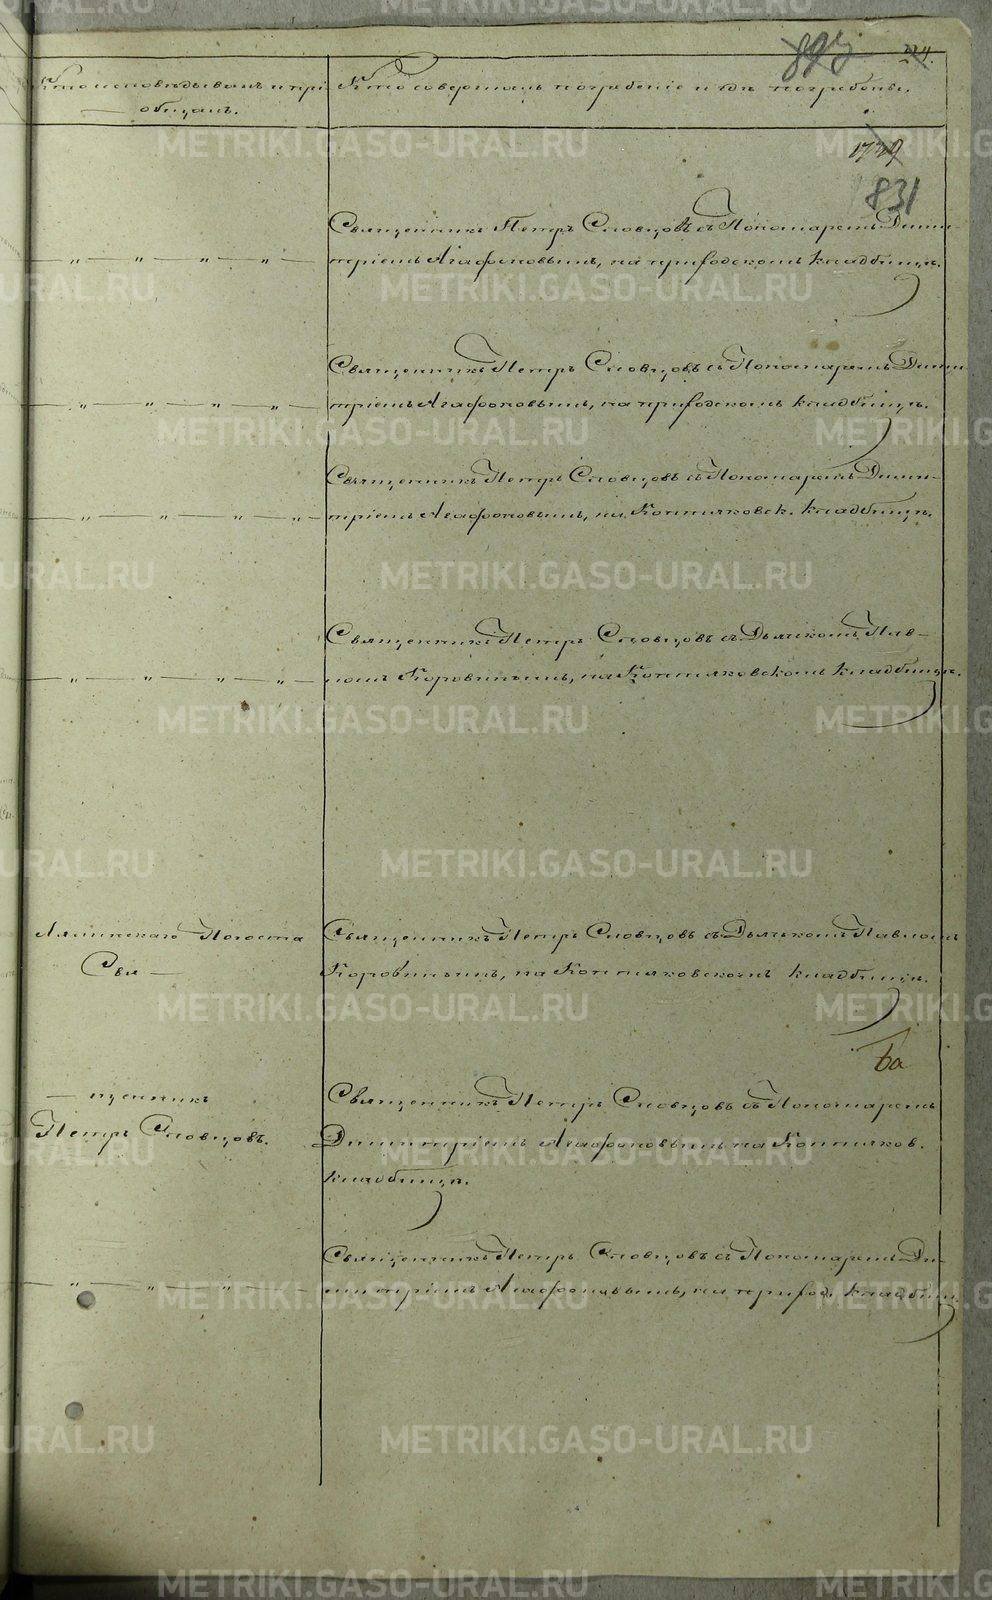 Кто исповѣдывалъ и прі-
общалъ.
Кто совершалъ погребеніе и гдѣ погребены.
893
224.
1729
831
Священникъ Петръ Словцовъ съ Пономаремъ Дими-
тріемъ Агафоновымъ, на приходскомъ кладбищѣ.
Священникъ Петръ Словцовъ съ Пономаремъ Дими-
тріемъ Агафоновымъ, на приходскомъ кладбищѣ.
Священникъ Петръ Словцовъ съ Пономаремъ Дими-
тріемъ Агафоновымъ, на Коптяковск. кладбищѣ.
Священникъ Петръ Словцовъ съ Дьячкомъ Пав-
ломъ Коровинымъ, на Коптяковскомъ кладбищѣ.
Лялинскаго Погоста
Свя-
Священникъ Петръ Словцовъ съ Дьячкомъ Павломъ
Коровинымъ, на Коптяковскомъ кладбищѣ.
щенникъ
Петръ Словцовъ.
Священникъ Петръ Словцовъ съ Пономаремъ
Димитріемъ Агафоновымъ на Коптяков.
кладбищѣ.
Священникъ Петръ Словцовъ съ Пономаремъ Ди-
митріемъ Агафоновымъ, на приход. кладбищ.
METRIKI.GASO-URAL.RU